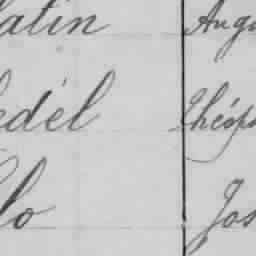 atin Augu
edél Théop
lo Jos